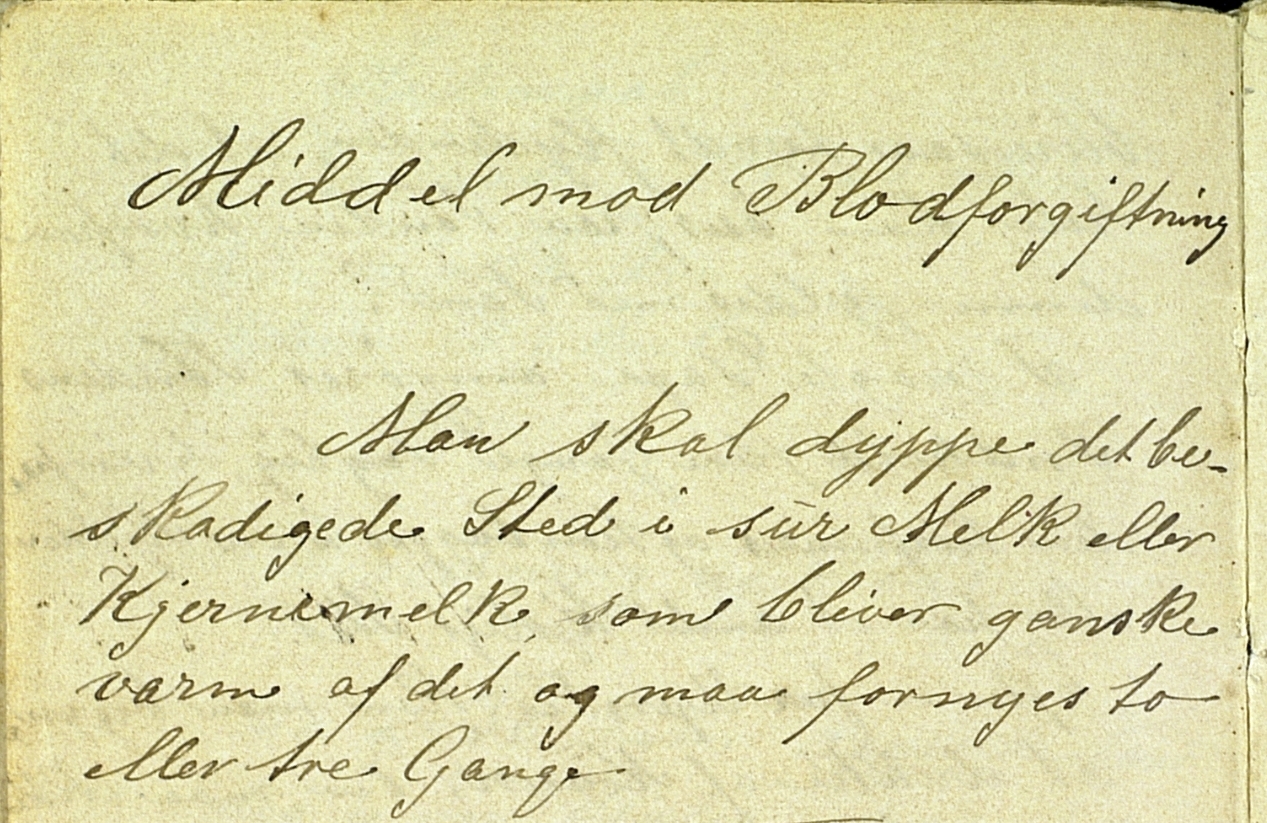 Middel mod Blodforgiftning
Man skal dyppe det be-
skadigede Sted i sur Melk eller
Kjernemelk, som bliver ganske
varm af det og maa fornyes to
eller tre Gange